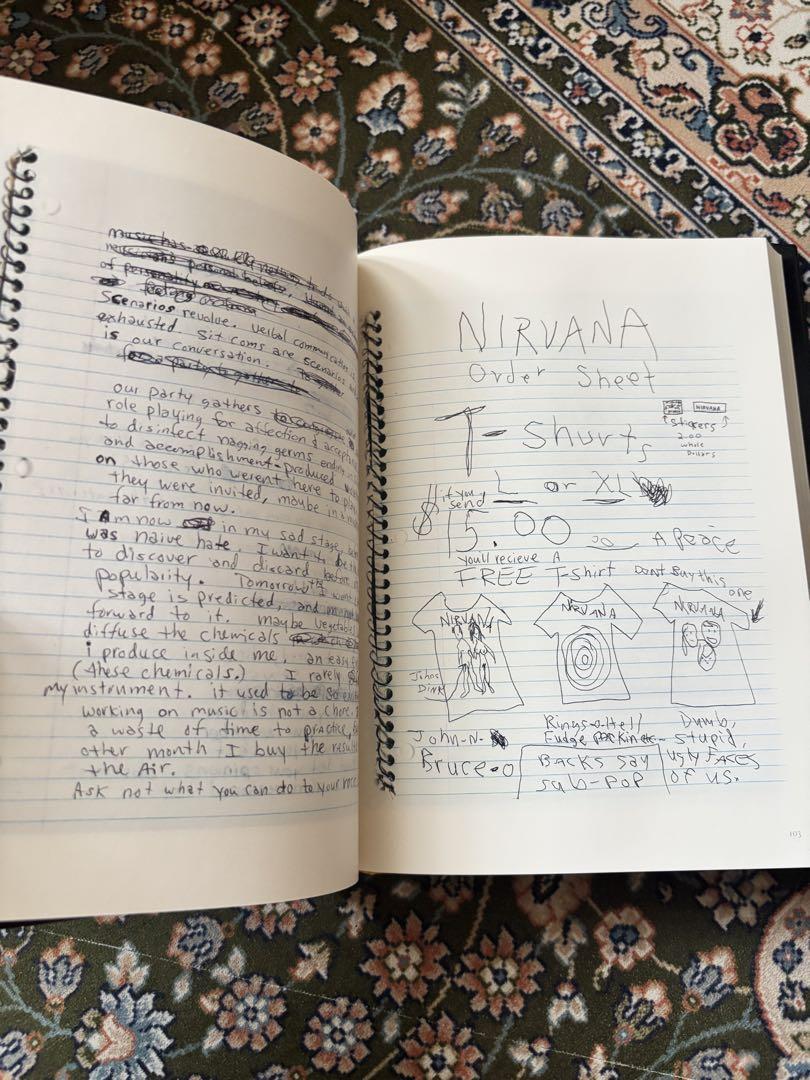 of
Scenarios revolve. verbal communication is
exhausted. Sit coms are scenarios
is our conversation.
our party gathers
role playing for affection & accepta
to disinfect nagging germs
and accomplishment-produced
on those who werent here to
they were invited, maybe in a
far from now.
I Am now in my sad stage,
was naive hate. I want to be the
to discover and discard before
popularity. Tomorrow I
stage is predicted, and
forward to it. maybe vegetables
diffuse the chemicals
i produce inside me. an easy
(these chemicals.) I rarely
my instrument. it used to be so
working on music is not a chore.
a waste of time to practice,
other month I buy the
the Air.
Ask not what you can do to your
NIRVANA
Order Sheet
NIRVANA
T-Shurts
stickers
2.00
whole
Dollars
L or XL
$ if you
send
15.00 A peice
youll recieve A
FREE T-shirt
Dont Buy this
one
NIRVANA
NIRVANA
NIRVANA
Johns
DINK
John-N.
Bruce-o
Rings-o-Hell/
Fudge packin
BACKS SAY
sub-pop
Dumb,
stupid,
ugly FACES
of us.
103